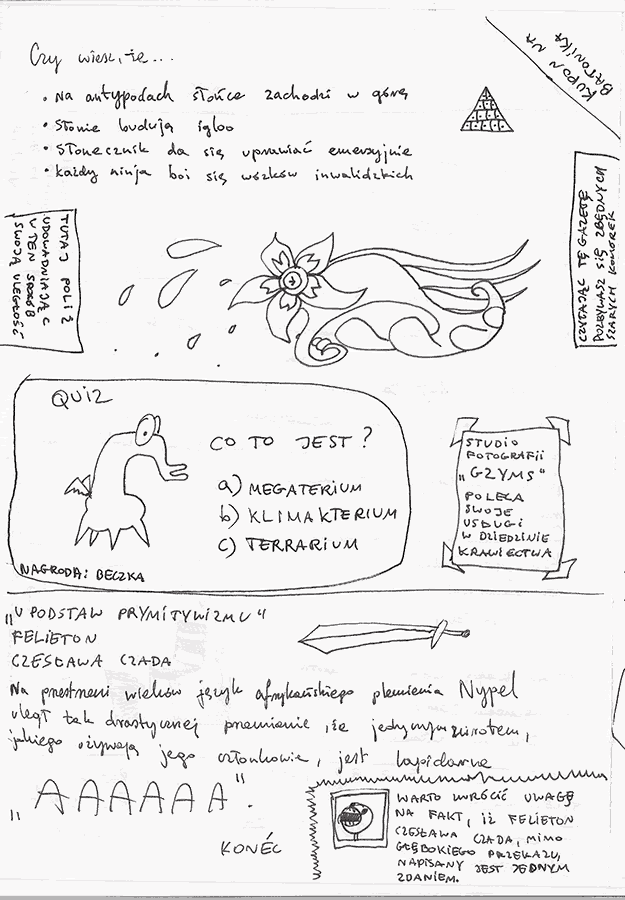 Czy wiesz, że...
• Na antypodach słońce zachodzi w górę
• Słonie budują igloo
• Słonecznik da się uprawiać emersyjnie
• Każdy ninja boi się wózków inwalidzkich
KUPON NA
BATONIKA
TUTAJ POLIŻ
UDOWADNIAJĄC
W TEN SPOSÓB
SWOJĄ ULEGŁOŚĆ
CZYTAJĄC TĘ GAZETĘ
POZBYWASZ SIĘ ZBĘDNYCH
SZARYCH KOMÓREK
QUIZ
CO TO JEST?
a) MEGATERIUM
b) KLIMAKTERIUM
c) TERRARIUM
NAGRODA: BECZKA
STUDIO
FOTOGRAFII
„GZYMS"
POLECA
SWOJE
USŁUGI
W DZIEDZINIE
KRAWIECTWA
„U PODSTAW PRYMITYWIZMU"
FELIETON
CZESŁAWA CZADA
Na przestrzeni wieków język afrykańskiego plemienia Nypel
uległ tak drastycznej przemianie, że jedynym zwrotem,
jakiego używają jego członkowie, jest lapidarne
„AAAAAA".
KONIEC
WARTO ZWRÓCIĆ UWAGĘ
NA FAKT, IŻ FELIETON
CZESŁAWA CZADA, MIMO
GŁĘBOKIEGO PRZEKAZU,
NAPISANY JEST JEDNYM
ZDANIEM.